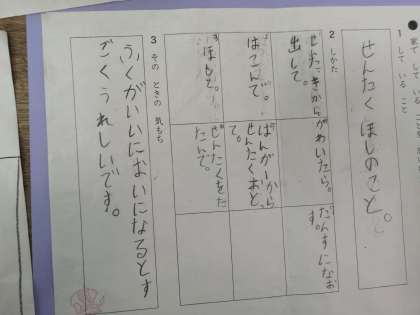 1 して いる こと
せんたくほしのこと。
2 しかた
せんたくきから
出して。
はこんで。
ほして。
かわいたら。
はんがーから
せんたくおと
て。
せんたくをた
たんで。
たんすになお
す。
3 その ときの 気もち
ふくがいいにおいになるとす
ごくうれしいです。